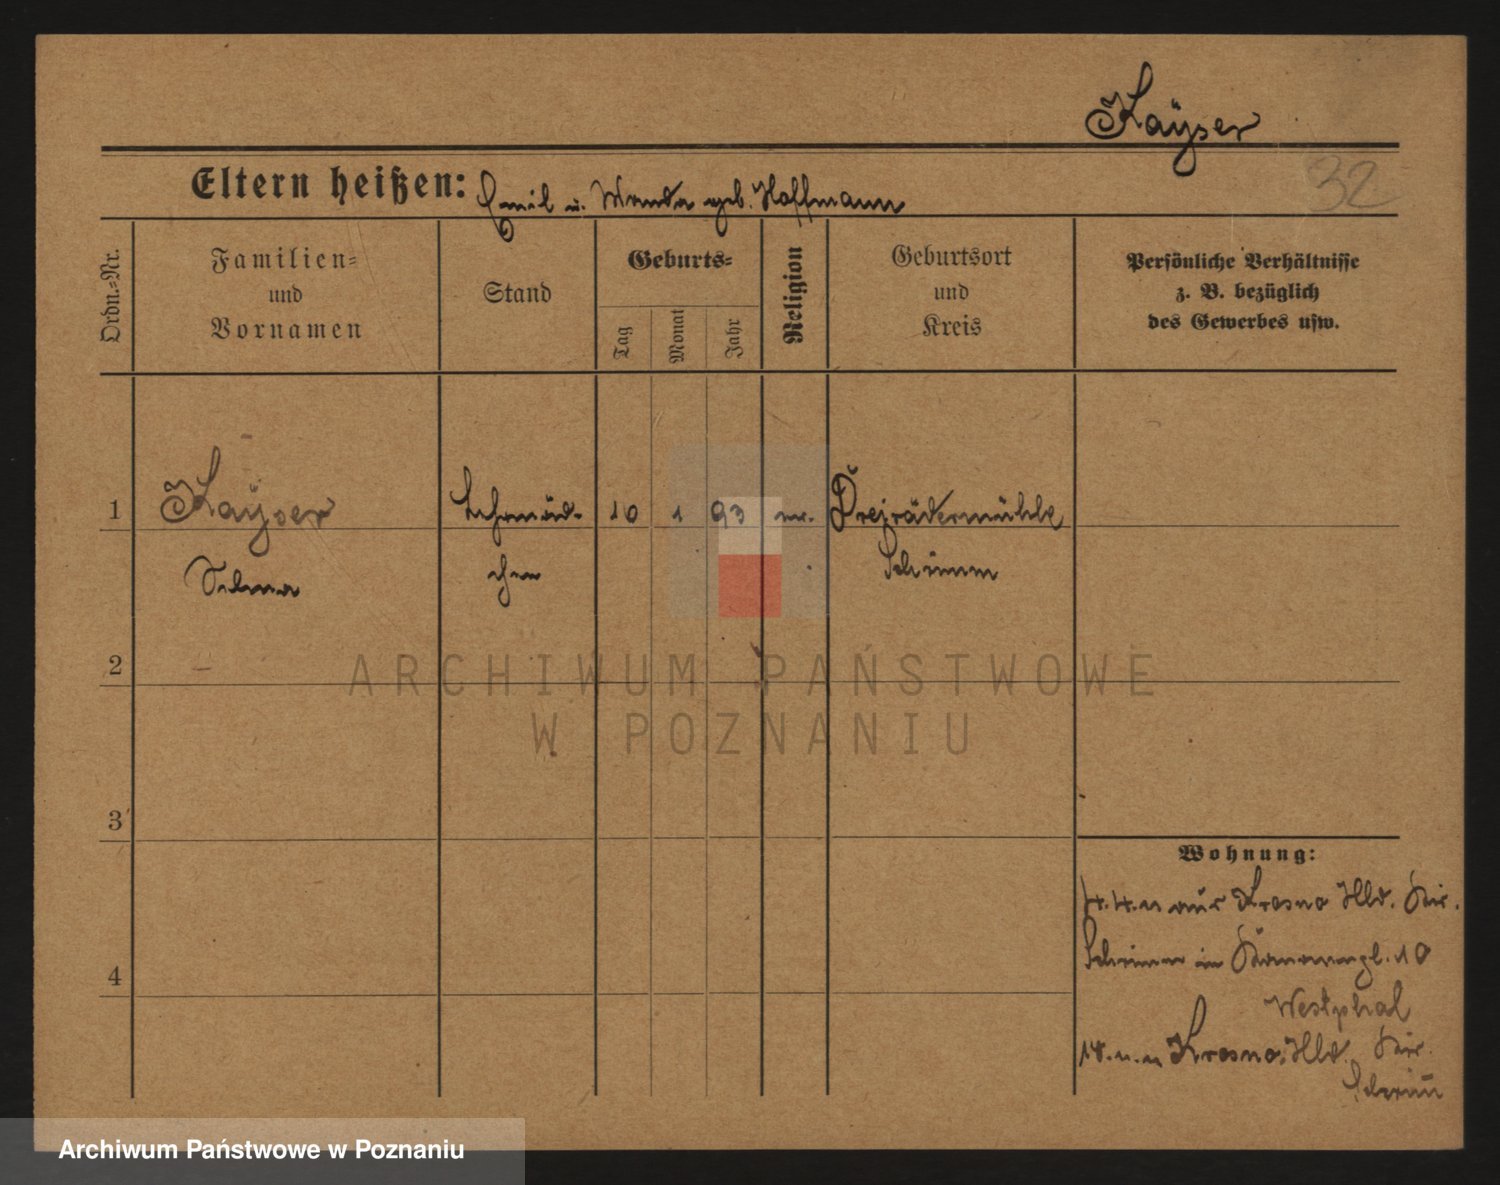 Kaÿser
32
Eltern heißen: Emil u. Wanda geb. Hoffmann
Ordn.=Nr.
Familien=
und
Vornamen
Stand
Geburts=
Tag
Monat
Jahr
Religion
Geburtsort
und
Kreis
Persönliche Verhältnisse
z. B. bezüglich
des Gewerbes usw.
1
Kaÿser
Selma
Lehrmäd-
chen
10
1
93
ev.
Dreirädermühle
Schrimm
2
3
4
Wohnung:
4.4.11 aus Krosno Hld. Kr.
Schrimm in 10
Westphal
Krosno Hld. Kr.
Schrim̄
ARCHIWUM PAŃSTWOWE
W POZNANIU
Archiwum Państwowe w Poznaniu